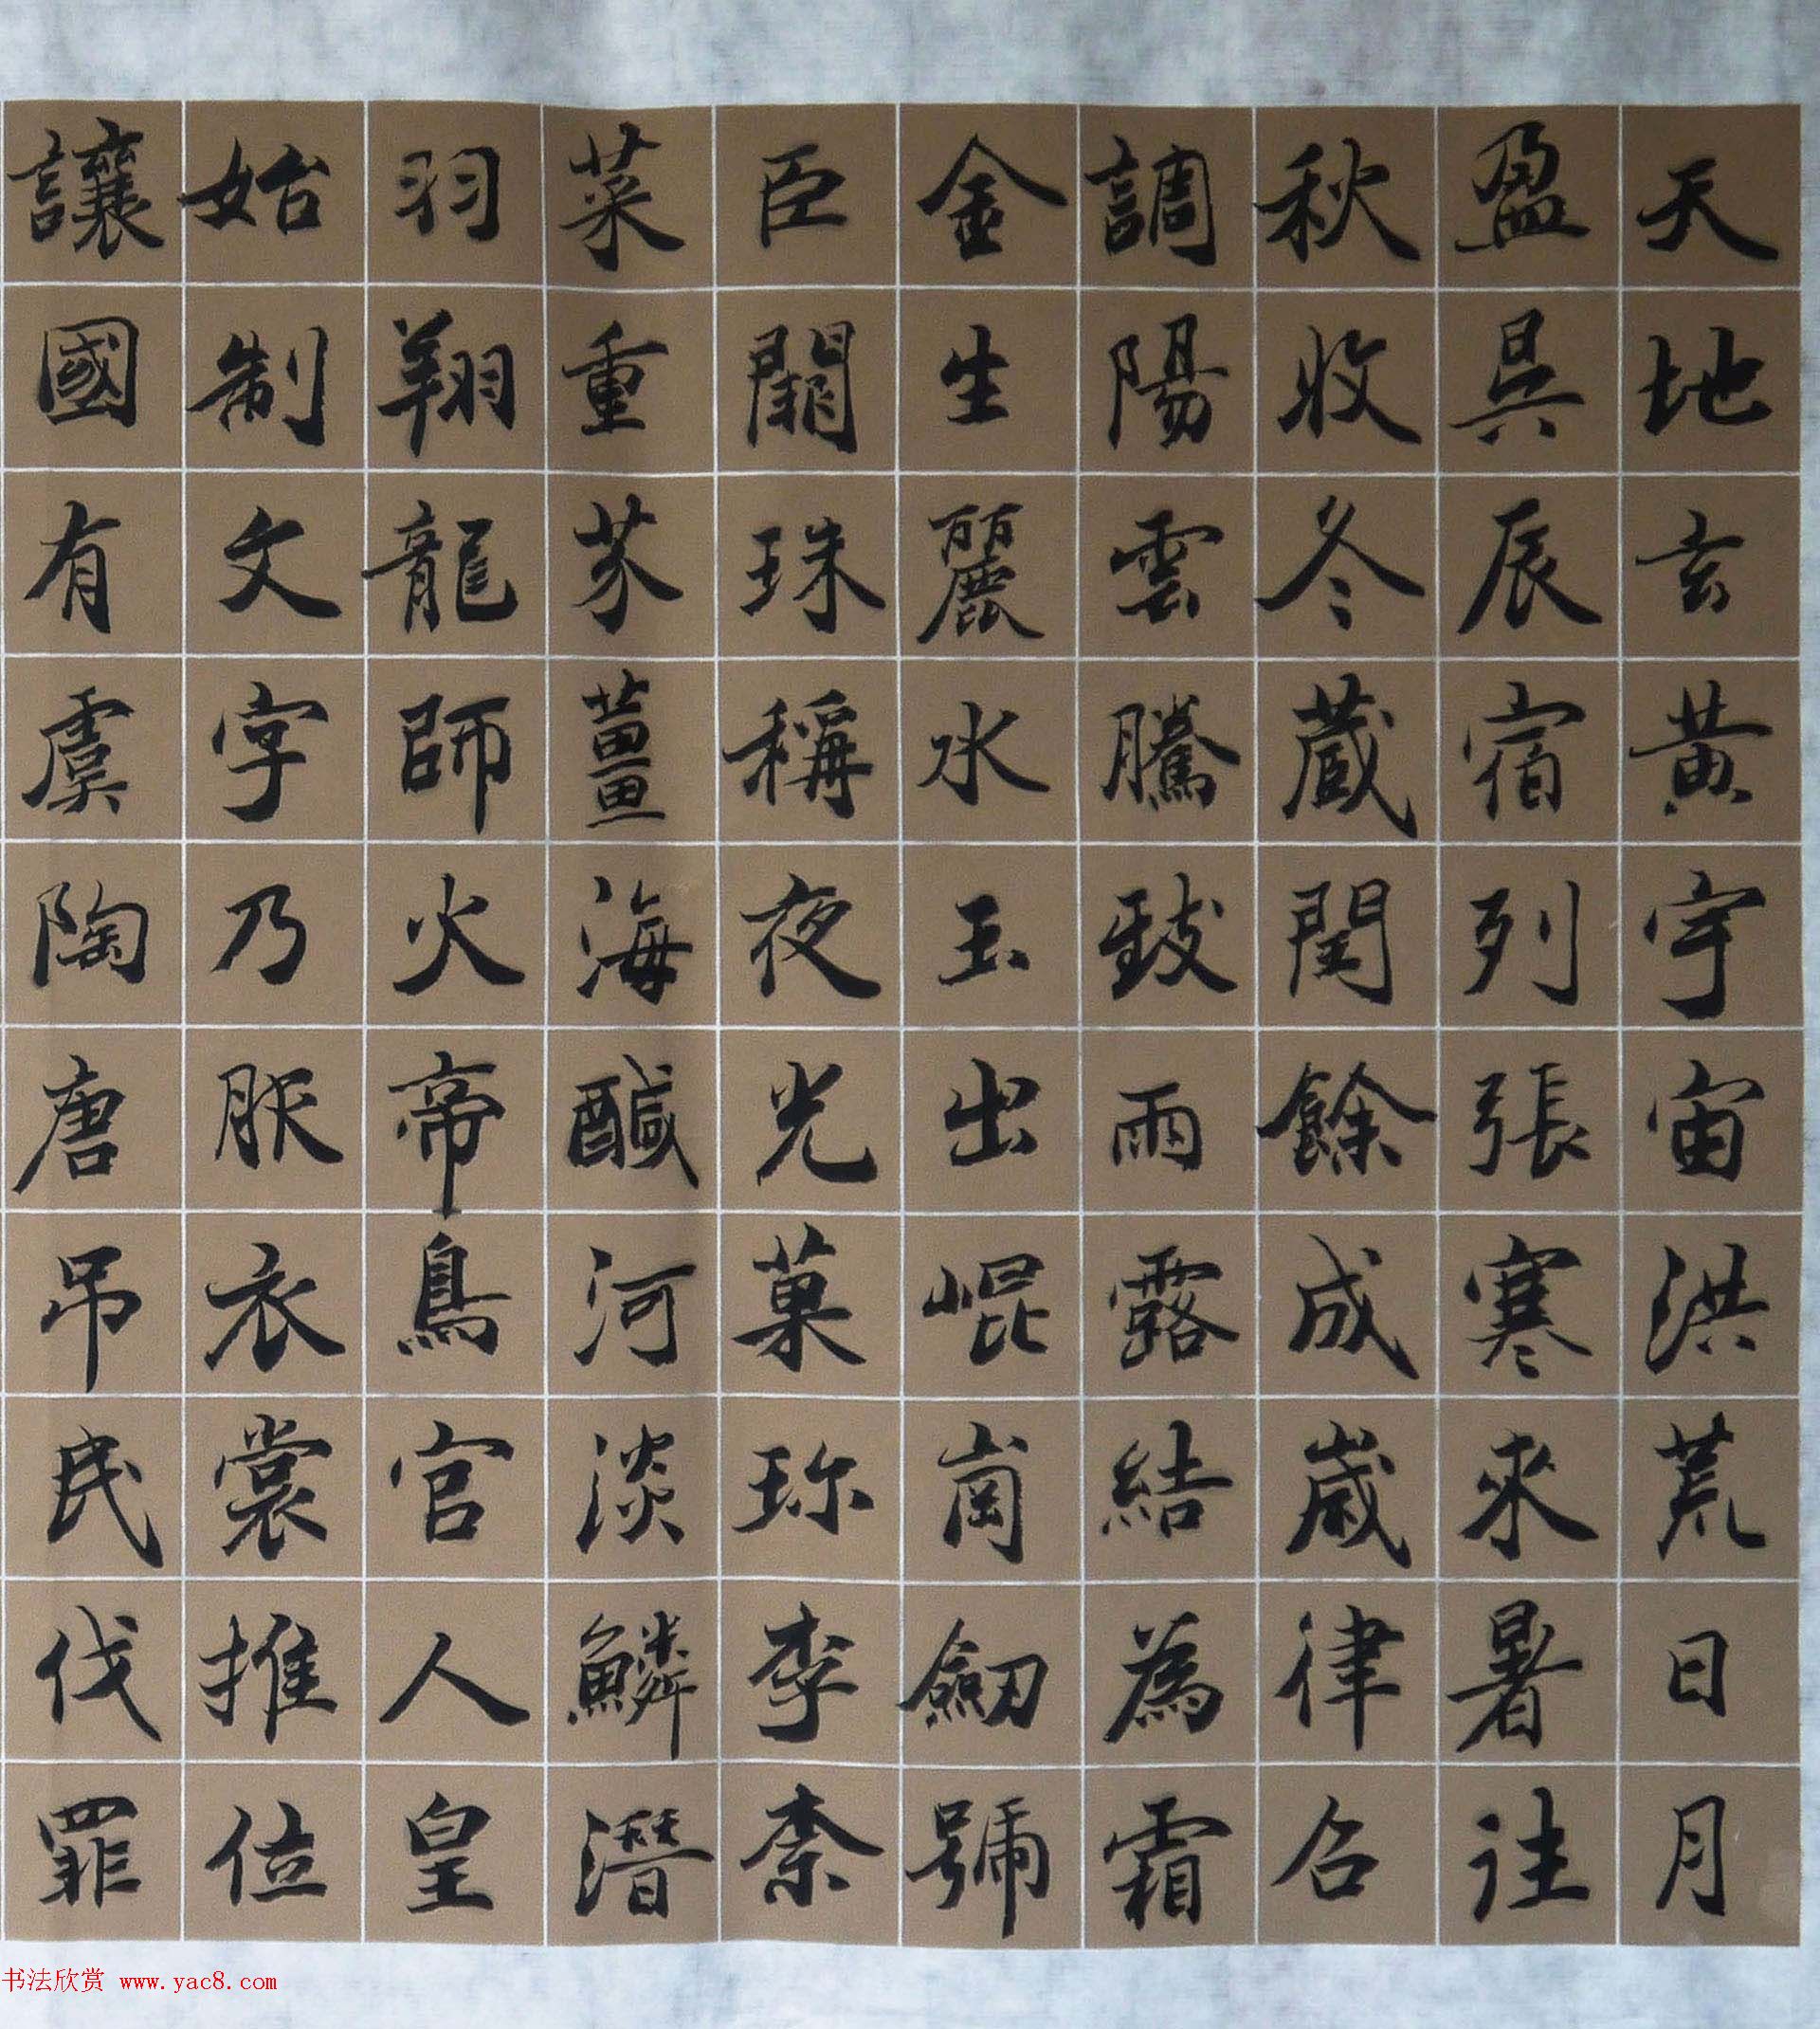 天地玄黃宇宙洪荒日月
盈昃辰宿列張寒來暑往
秋收冬藏閏餘成歲律召
調陽雲騰致雨露結為霜
金生麗水玉出崐崗劒號
臣闕珠稱夜光菓珎李柰
菜重芥薑海醎河淡鱗潛
羽翔龍師火帝鳥官人皇
始制文字乃服衣裳推位
讓國有虞陶唐吊民伐罪
书法欣赏 www.yac8.com